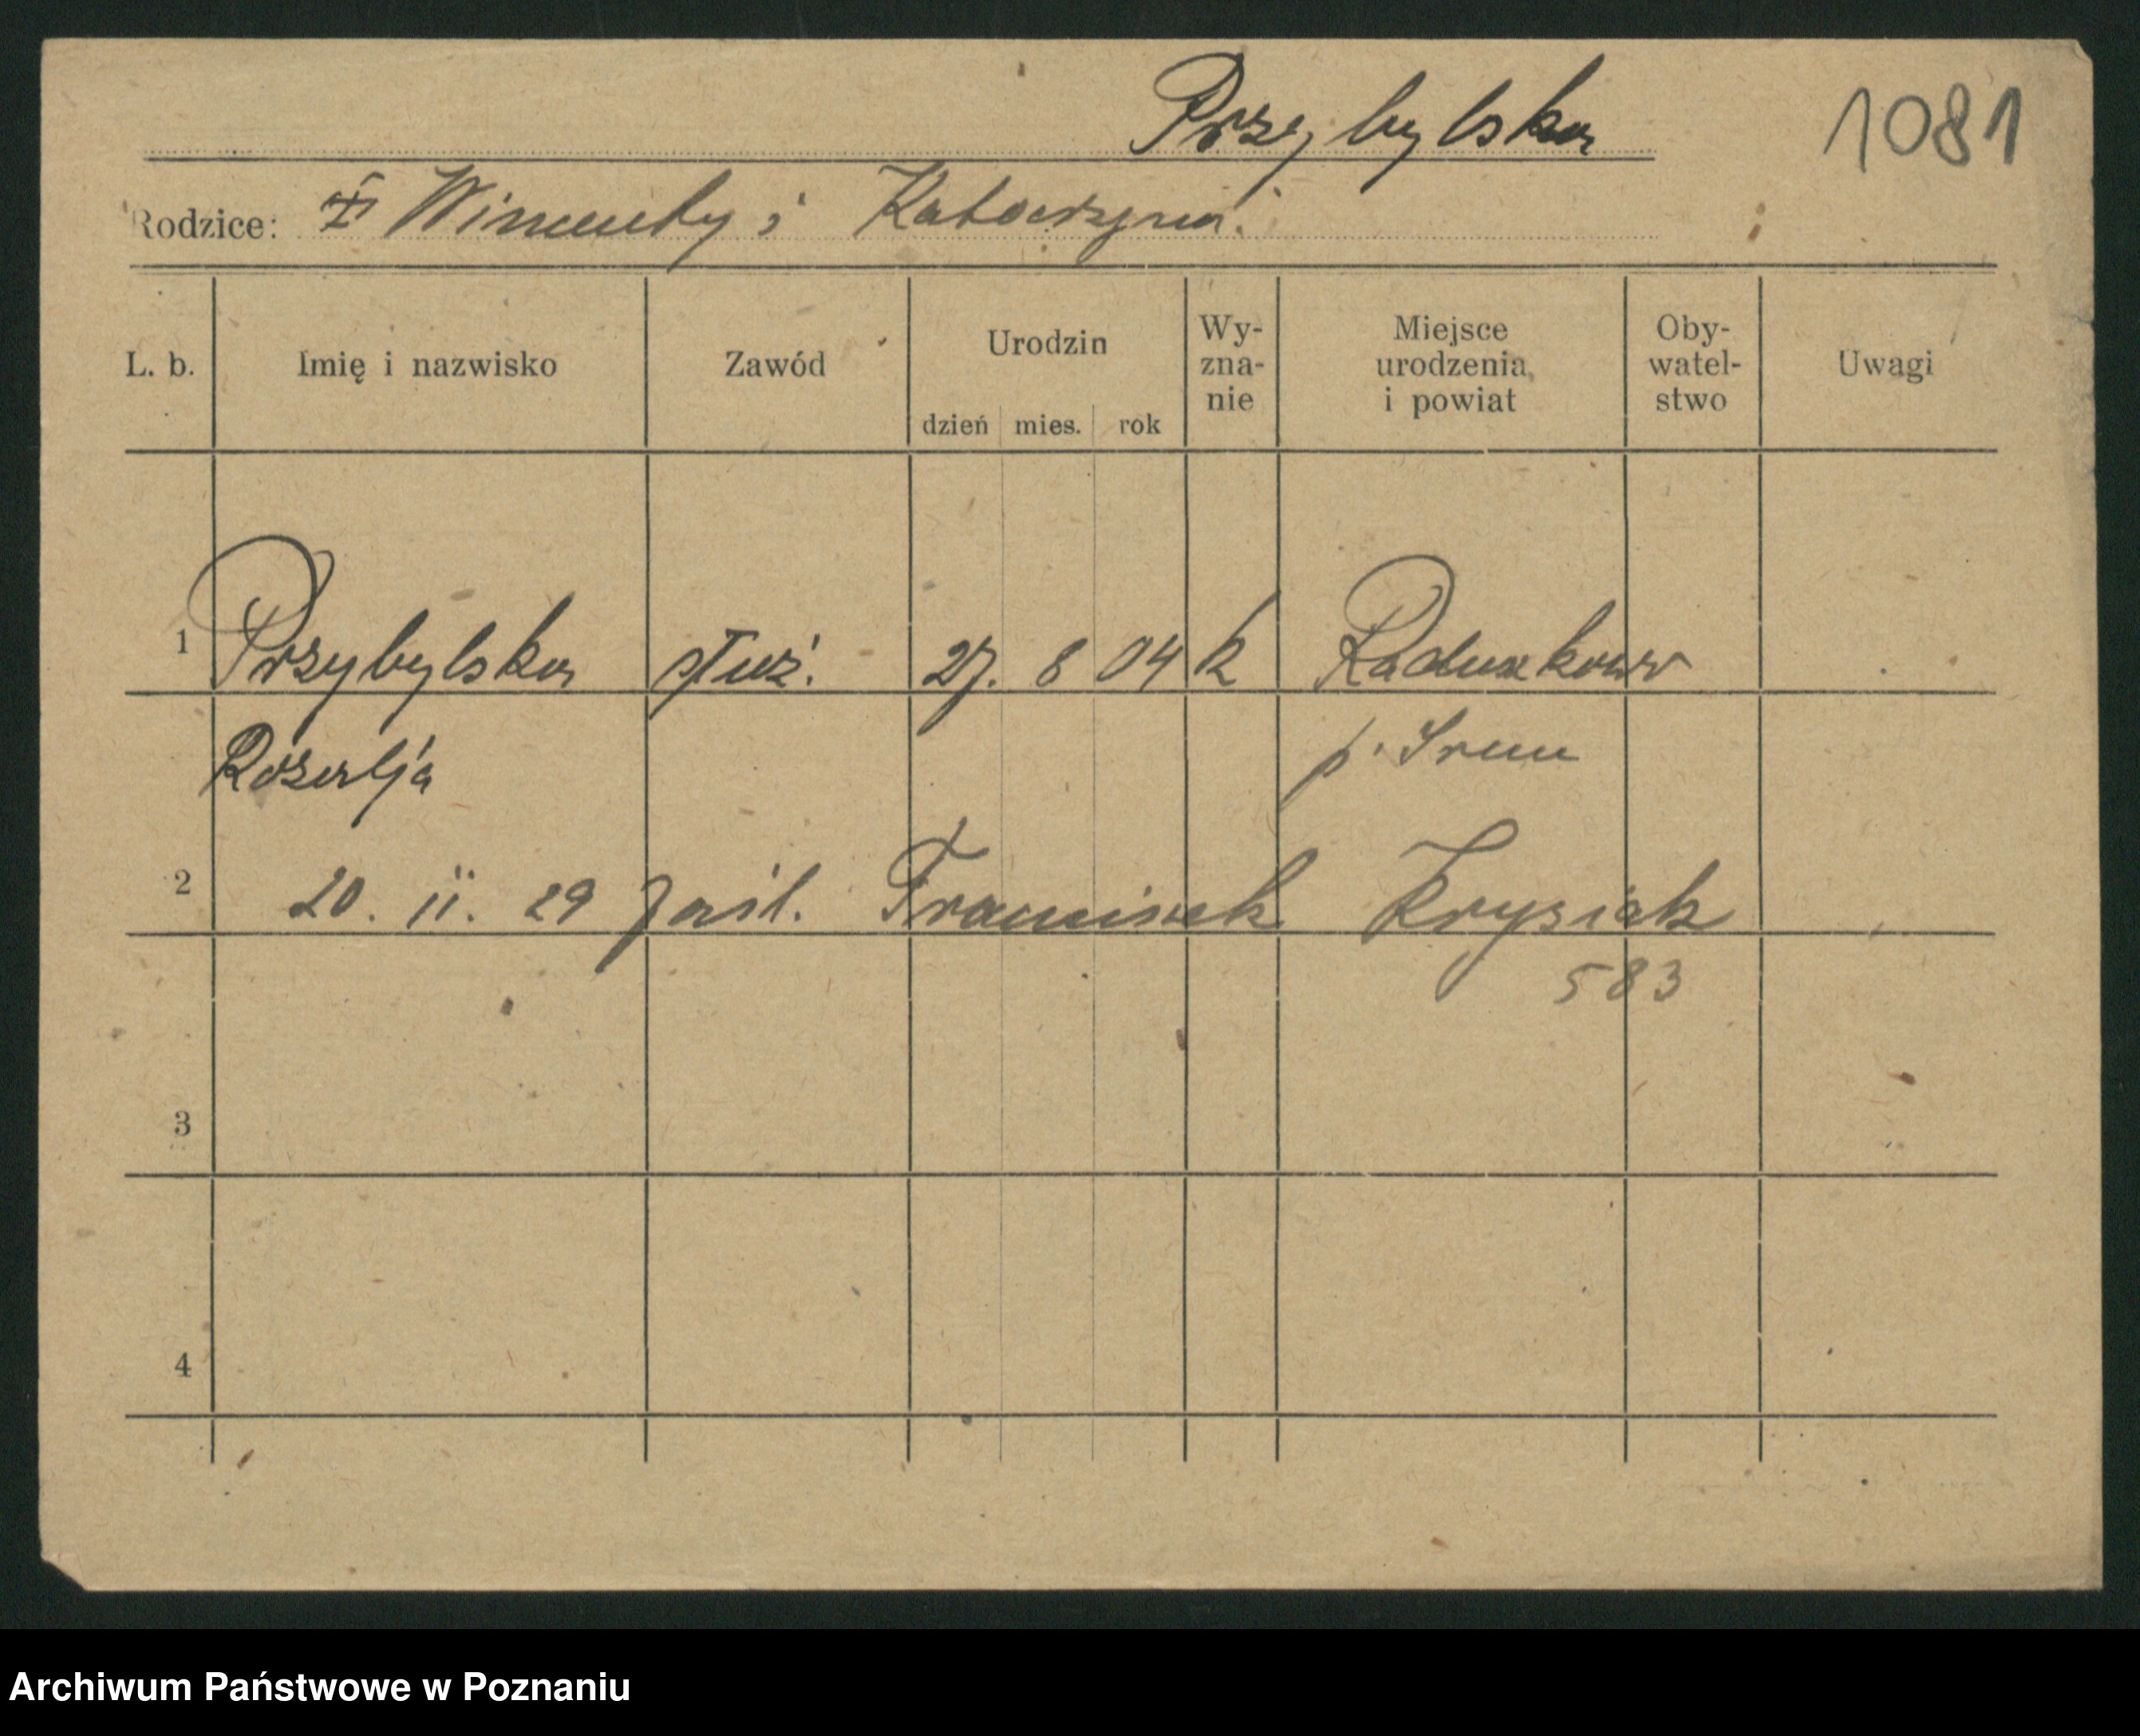 Przybylska
1081
Rodzice: Wincenty i Katarzyna.
L. b. Imię i nazwisko Zawód Urodzin Wy- Miejsce Oby- Uwagi
zna- urodzenia watel-
nie i powiat stwo
dzień mies. rok
1 Przybylska służ. 27. 8 04 k
Rozalja p. Śrem
2 20. 11. 29 zaśl. Franciszek Krysiak
583
3
4
Archiwum Państwowe w Poznaniu